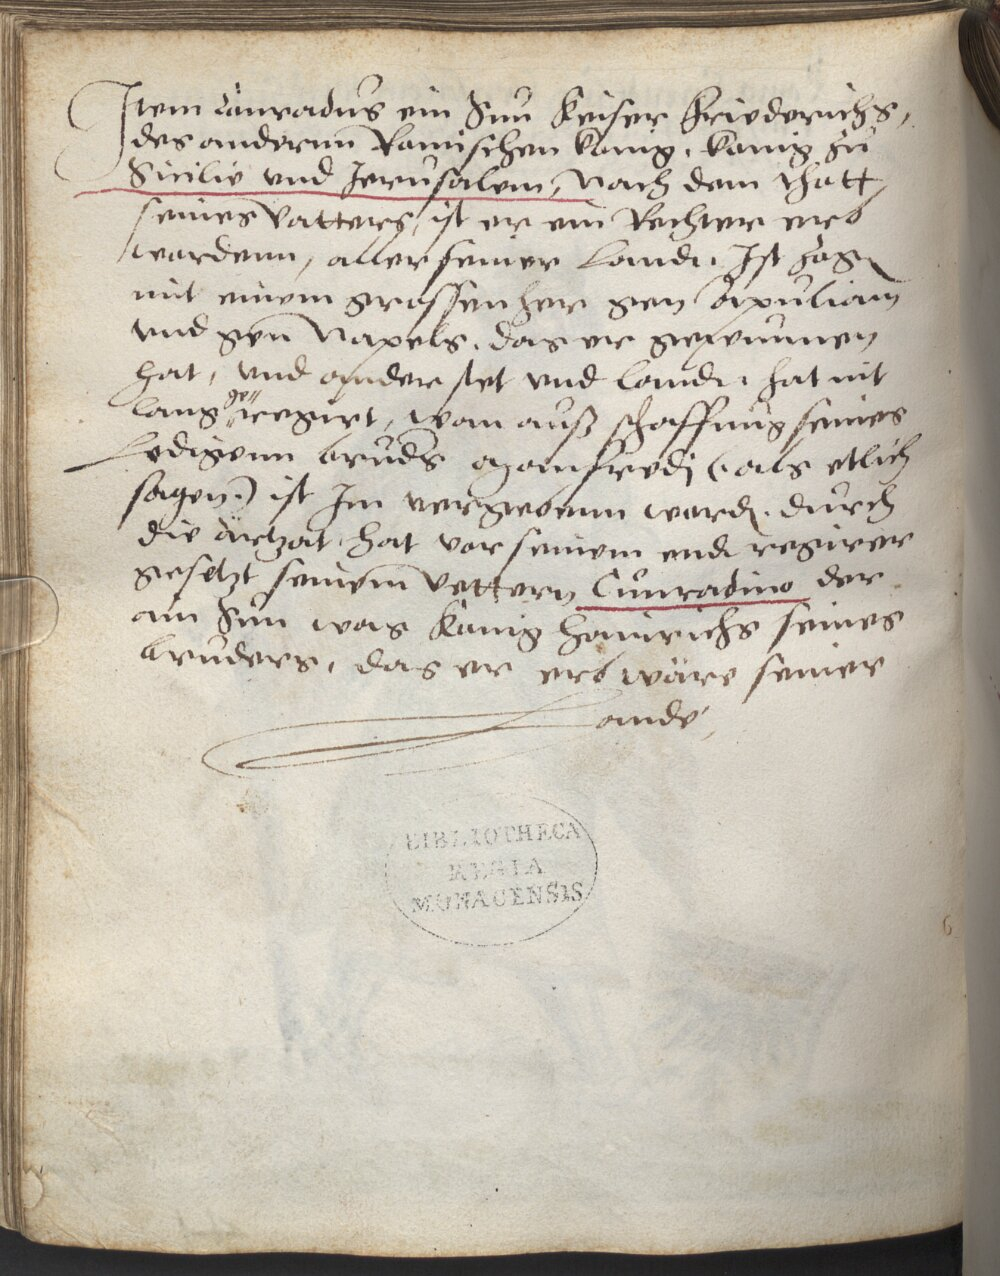 Item Cunradus ein Sun Keiser Friderichs,
des andernn Romischen konig, konig zu
Sicilie vnd Jerusalem, Nach dem thatt
seines Vatters, ist er ein Rechter erb
wordenn, aller seiner Lande. Ist
mit einem grossen her gen Apuliam
vnd gen Napels. das er gewunnen
hat, vnd ander stet vnd lande. hat nit
lang geregirt, wan auß schaffung seines
Ledigenn bruders Manfredj (als etlich
sagen) ist Im vergebenn word. durch
die Artzat hat vor seinem end regirer
gesetzt seinem vettern Cunradino der
ain Sun was Konig Hainrichs seines
bruders, das er erb wäre seiner
Lande,
BIBLIOTHECA
REGIA
MONACENSIS
6